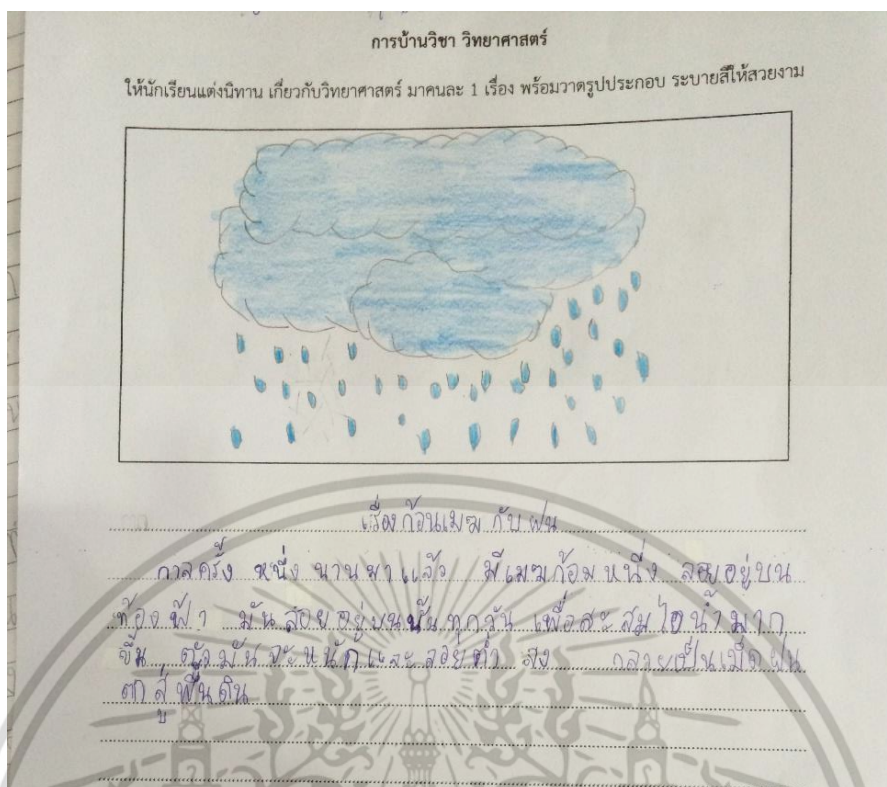 การบ้านวิชา วิทยาศาสตร์
ให้นักเรียนแต่งนิทาน เกี่ยวกับวิทยาศาสตร์ มาคนละ 1 เรื่อง พร้อมวาดรูปประกอบ ระบายสีให้สวยงาม
เรื่อง ก้อนเมฆ กับ ฝน
กาลครั้ง หนึ่ง นานมาแล้ว มีเมฆก้อนหนึ่ง ลอยอยู่บน
ท้องฟ้า มันลอยอยู่บนนั้นทุกวัน เพื่อสะสมไอน้ำมาก
ขึ้น ตัวมันจะหนักและลอยต่ำ ลง กลายเป็นเม็ดฝน
ตกสู่พื้นดิน